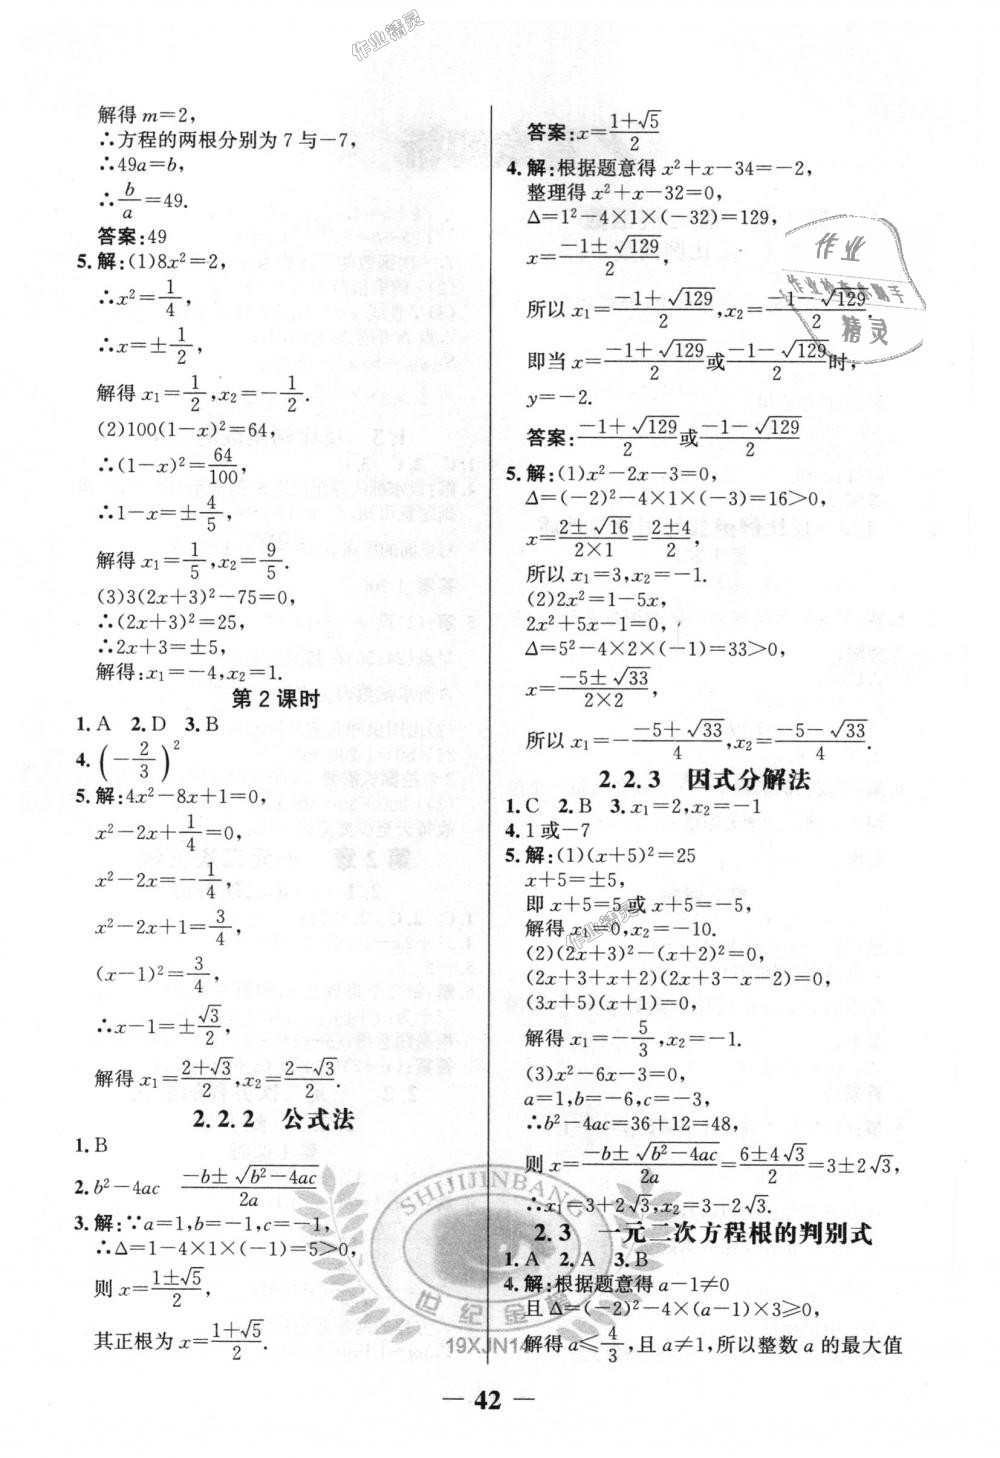 解得 m=2,
∴方程的两根分别为 7 与-7,
∴49a=b,
∴b/a=49.
答案:49
5.解:(1)8x²=2,
∴x²=1/4,
∴x=±1/2,
解得 x₁=1/2,x₂=-1/2.
(2)100(1-x)²=64,
∴(1-x)²=64/100,
∴1-x=±4/5,
解得 x₁=1/5,x₂=9/5.
(3)3(2x+3)²-75=0,
∴(2x+3)²=25,
∴2x+3=±5,
解得:x₁=-4,x₂=1.
第 2 课时
1. A 2. D 3. B
4. (-2/3)²
5.解:4x²-8x+1=0,
x²-2x+1/4=0,
x²-2x=-1/4,
x²-2x+1=3/4,
(x-1)²=3/4,
∴x-1=±√3/2,
解得 x₁=(2+√3)/2,x₂=(2-√3)/2.
2.2.2 公式法
1. B
2. b²-4ac (-b±√(b²-4ac))/2a
3.解:∵a=1,b=-1,c=-1,
∴Δ=1-4×1×(-1)=5>0,
则 x=(1±√5)/2,
其正根为 x=(1+√5)/2.
答案:x=(1+√5)/2
4.解:根据题意得 x²+x-34=-2,
整理得 x²+x-32=0,
Δ=1²-4×1×(-32)=129,
x=(-1±√129)/2,
所以 x₁=(-1+√129)/2,x₂=(-1-√129)/2.
即当 x=(-1+√129)/2或(-1-√129)/2时,
y=-2.
答案:(-1+√129)/2或(-1-√129)/2
5.解:(1)x²-2x-3=0,
Δ=(-2)²-4×1×(-3)=16>0,
x=(2±√16)/(2×1)=(2±4)/2,
所以 x₁=3,x₂=-1.
(2)2x²=1-5x,
2x²+5x-1=0,
Δ=5²-4×2×(-1)=33>0,
x=(-5±√33)/(2×2),
所以 x₁=-(-5+√33)/4,x₂=(-5-√33)/4.
2.2.3 因式分解法
1. C 2. B 3. x₁=2,x₂=-1
4. 1 或-7
5.解:(1)(x+5)²=25
x+5=±5,
即 x+5=5 或 x+5=-5,
解得 x₁=0,x₂=-10.
(2)(2x+3)²-(x+2)²=0,
(2x+3+x+2)(2x+3-x-2)=0,
(3x+5)(x+1)=0,
解得 x₁=-5/3,x₂=-1.
(3)x²-6x-3=0,
a=1,b=-6,c=-3,
∴b²-4ac=36+12=48,
则 x=(-b±√(b²-4ac))/2a=(6±4√3)/2=3±2√3,
∴x₁=3+2√3,x₂=3-2√3.
2.3 一元二次方程根的判别式
1. A 2. A 3. B
4.解:根据题意得 a-1≠0
且 Δ=(-2)²-4×(a-1)×3≥0,
解得 a≤4/3,且 a≠1,所以整数 a 的最大值
— 42 —
作业精灵
作业
作业检查小助手
精灵
作业精灵
SHIJIJINBANG
世纪金榜
19XJN14